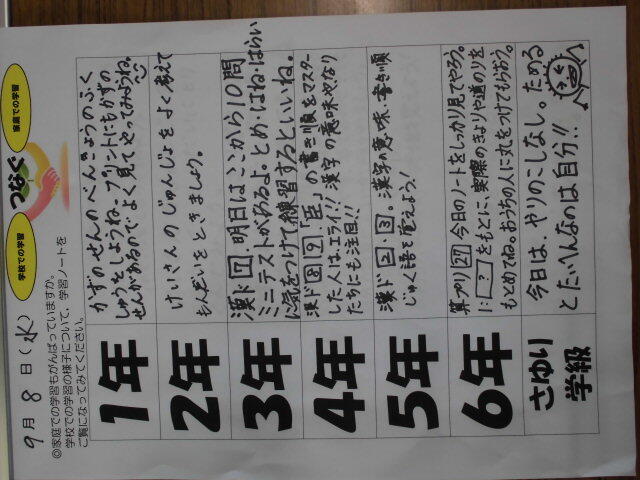 9月8日(水)
学校での学習
つなぐ
家庭での学習
◎家庭での学習もがんばっていますか。
学校での学習の様子について、学習ノートを
ご覧になってみてください。
1年
かずのせんのべんきょうのふく
しゅうをしようね。プリントにもかずの
せんがあるのでよく見てやってみようね。
2年
けいさんのじゅんじょをよく考えて
もんだいをときましょう。
3年
漢ド7 明日はここから10問
ミニテストがあるよ。とめ・はね・はらい
に気をつけて練習するといいね。
4年
漢ド89「臣」の書き順をマスター
した人は、エライ!! 漢字の意味やなり
たちにも注目!!
5年
漢ド2・3 漢字の意味・書き順
じゅく語を覚えよう!
6年
算プリ27 今日のノートをしっかり見てやろう。
1:?をもとに、実際のきょりや道のりを
もとめてね。おうちの人に丸をつけてもらおう。
さゆり
学級
今日は、やりのこしなし。ためる
とたいへんなのは自分!!